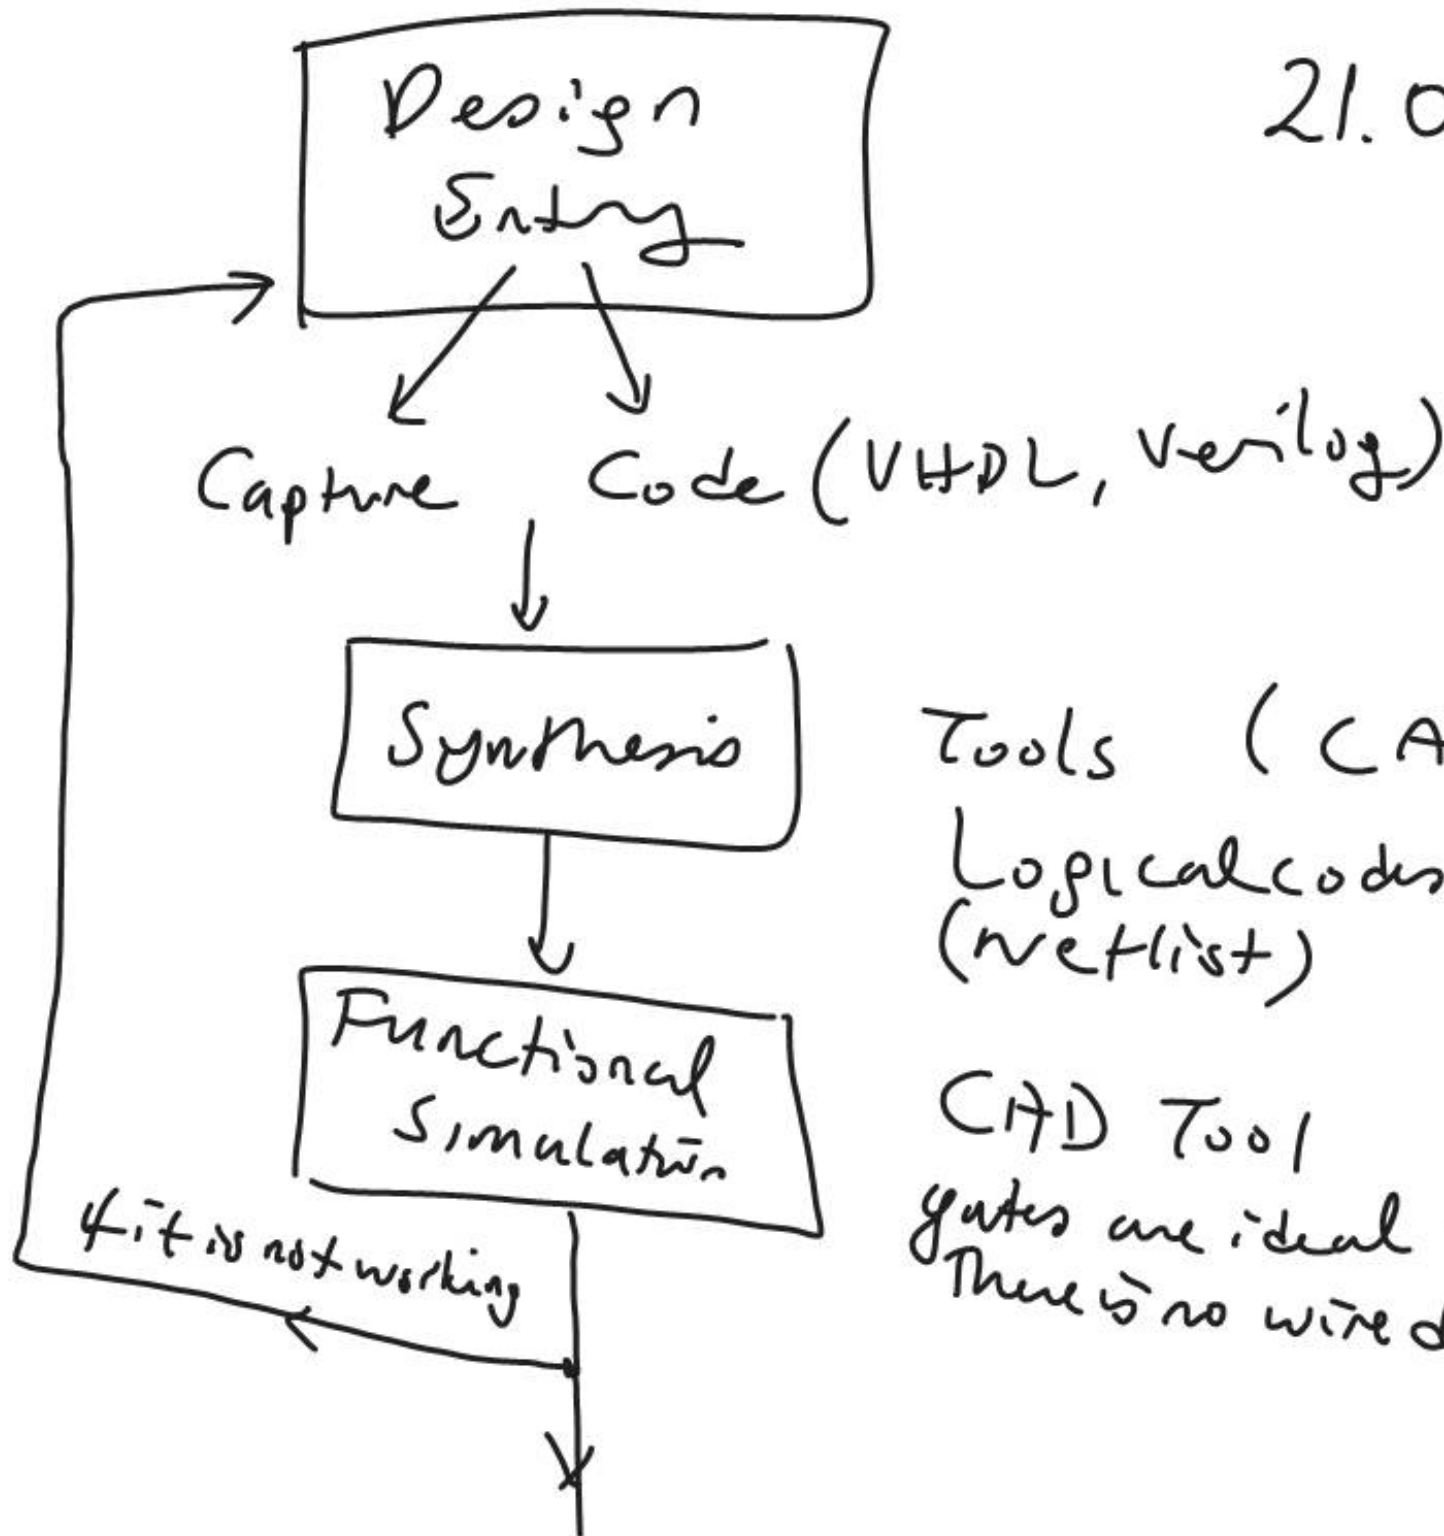 Design
21.0
Entry
Capture Code (VHDL, Verilog)
Synthesis
Tools (CA
Logical codes
(Netlist)
Functional
Simulation
CAD Tool
gates are ideal
There is no wire d
if it is not working